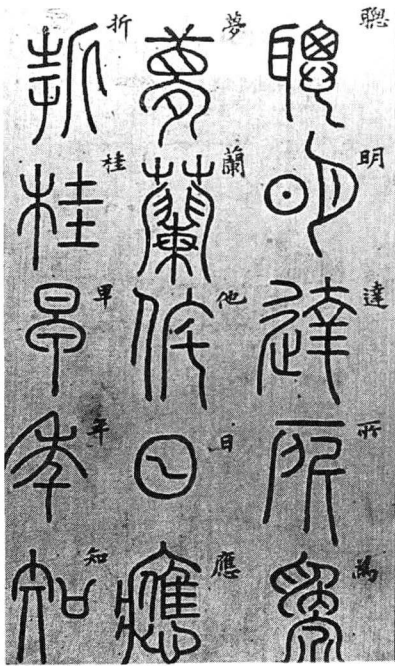 聰明達所為
夢蘭他日應
折桂早年知